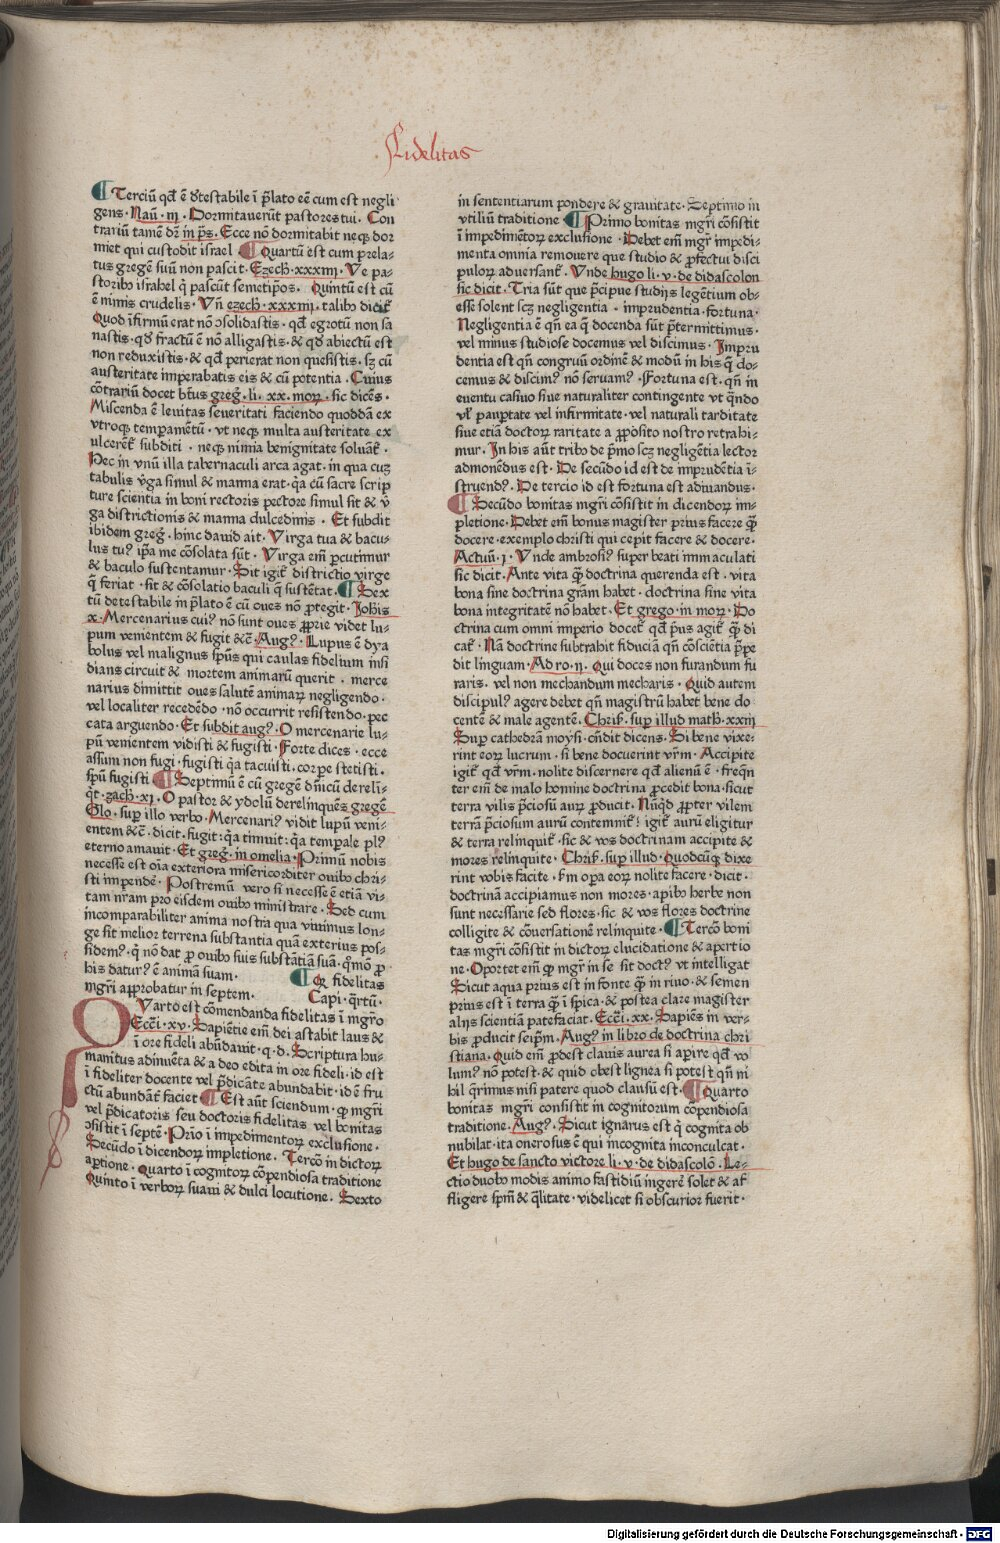 Fidelitas
¶ Terciū qd̄ ē d̄testabile ī p̄lato eē cum est negli
gens · Naū · iij . Dormitauerūt pastores tui . Con
trariū tamē dr̄ in p̄s . Ecce nō dormitabit neqꝫ dor
miet qui custodit israel ¶ Quartū est cum prela-
tus gregē suū non pascit · Ezech̄ · xxxiiij · Ve pa-
storibꝰ israhel q̄ pascūt semetip̄os · Quintū est cū
ē nimis crudelis · Vn̄ ezech̄ · xxxiiij · talibꝰ dicit̄
Quod īfirmū erat nō ↄsolidastis · qd̄ egrotū non sa
nastis · qd̄ fractū ē nō alligastis · & qd̄ abiectū est
non reduxistis · & qd̄ perierat non quesistis · sꝫ cū
austeritate imperabatis eis & cū potentia . Cuius
cōtrariū docet bt̄us greḡ · li · xx · moꝝ · sic dicēs ·
Miscenda ē leuitas seueritati faciendo quoddā ex
vtroqꝫ temperamētū · vt neqꝫ multa austeritate ex
ulcerēt̄ subditi · neqꝫ nimia benignitate soluāt̄ ·
Hec in vnū illa tabernaculi arca agat · in qua cuꝫ
tabulis v̄ga simul & manna erat · q̄a cū sacre scrip
ture scientia in boni rectoris pectore simul sit & v̄
ga districtionis & manna dulcedinis . Et subdit
ibidem greḡ · hinc dauid ait · Virga tua & bacu-
lus tuꝰ ip̄a me cōsolata sūt · Virga em̄ ꝑcutimur
& baculo sustentamur · Sit igit̄ districtio virge
q̄ feriat · sit & cōsolatio baculi q̄ sustētat · ¶ Sex
tū detestabile in p̄lato ē cū oues nō ꝓtegit · Joh̄is
x · Mercenarius cuiꝰ nō sunt oues ꝓprie videt lu-
pum venientem & fugit &c̄ · Augꝰ · Lupus ē dya
bolus vel malignus sp̄us qui caulas fidelium insi
dians circuit & mortem animarū querit · merce
narius dimittit oues salutē animaꝝ negligendo ·
vel localiter recedēdo · nō occurrit resistendo · pec
cata arguendo · Et subdit augꝰ · O mercenarie lu-
pū venientem vidisti & fugisti · Forte dices · ecce
assum non fugi · fugisti q̄a tacuisti · corpe stetisti ·
sp̄u fugisti ¶ Septimū ē cū gregē dn̄icū dereli-
q̄t · zach̄ · xj · O pastor & ydolū derelinquēs gregē
Glo · suꝑ illo verbo · Mercenariꝰ vidit lupū veni-
entem &c̄ · dicit · fugit · q̄a timuit · q̄a tempale plꝰ
eterno amauit · Et greḡ · in omelia · Primū nobis
necesse est oīa exteriora misericorditer ouibꝰ chri-
sti impendē · Postremū vero si necesse ē etiā vi-
tam nr̄am pro eisdem ouibꝰ ministrare · Sed cum
incomparabiliter anima nostra qua viuimus lon-
ge sit melior terrena substantia quā exterius pos-
sidemꝰ · q̄ nō dat ꝓ ouibꝰ suis substātiā suā · q̄mō ꝓ
his daturꝰ ē animā suam ·
¶ Qꝛ fidelitas
mgr̄i aꝓbatur in septem · Capi · q̄rtū ·
QVarto est cōmendanda fidelitas ī mgr̄o
Ecci̅ · xv · Sapiētie em̄ dei astabit laus &
ī ore fideli abūdauit · q · d · Scriptura hu-
manitus adinuēta & a deo edita in ore fideli · id est
ī fideliter docente vel p̄dicāte abundabit · id ē fru
ctū abundāt̄ faciet ¶ Est aūt sciendum · ꝙ mgr̄i
vel p̄dicatoris seu doctoris fidelitas vel bonitas
ↄsistit ī septē · Prīo ī impedimentoꝝ exclusione ·
Secūdo ī dicendoꝝ impletione · Tercō in dictoꝝ
aꝑtione · Quarto ī cognitoꝝ cōpendiosa traditione
Quinto ī verboꝝ suaui & dulci locutione · Sexto
in sententiarum pondere & grauitate · Septimo in
vtiliū traditione ¶ Primo bonitas mgr̄i cōsistit
ī impedimētoꝝ exclusione · Debet em̄ mgr̄ impedi-
menta omnia remouere que studio & ꝓfectui disci
puloꝝ aduersant̄ · Vnde hugo li · v · de didascolon
sic dicit · Tria sūt que p̄cipue studijs legētium ob-
esse solent scꝫ negligentia · imprudentia · fortuna ·
Negligentia ē qn̄ ea q̄ docenda sūt p̄termittimus ·
vel minus studiose docemus vel discimus · Impru
dentia est qn̄ congruū ordinē & modū in his q̄ do-
cemus & discimꝰ nō seruamꝰ · Fortuna est · qn̄ in
euentu casuo siue naturaliter contingente vt q̄ndo
vl̄ paupertate vel infirmitate · vel naturali tarditate
siue etiā doctoꝝ raritate a ꝓposito nostro retrahi-
mur · In his aūt tribꝰ de p̄mo scꝫ negligētia lector
admonēdus est · De secūdo id est de imprudētia ī-
struendꝰ · De tercio id est fortuna est adiuuandus ·
¶ Secūdo bonitas mgr̄i cōsistit in dicendoꝝ im-
pletione · Debet em̄ bonus magister prius facere q̄
docere · exemplo christi qui cepit facere & docere ·
Actuū · j · Vnde ambrosiꝰ super beati immaculati
sic dicit · Ante vita q̄ doctrina querenda est · vita
bona sine doctrina grām habet · doctrina sine vita
bona integritatē nō habet · Et grego · in moꝝ · Do
ctrina cum omni imperio docet̄ qd̄ p̄us agit̄ q̄ di
cat̄ · Nā doctrine subtrahit fiduciā qn̄ cōscientia p̄pe
dit linguam · Ad ro · ij · Qui doces non furandum fu
raris · vel non mechandum mecharis · Quid autem
discipulꝰ agere debet qn̄ magistrū habet bene do
centē & male agentē · Chris̄ · suꝑ illud math̄ · xxiij
Suꝑ cathedrā moysi · ōn̄dit dicens · Si bene vixe-
rint eoꝝ lucrum · si bene docuerint vr̄m · Accipite
igit̄ qd̄ vr̄m · nolite discernere qd̄ alienū ē · freqn̄
ter em̄ de malo homine doctrina ꝓcedit bona · sicut
terra vilis p̄ciosū auꝝ ꝓducit · Nūqd ꝓpter vilem
terrā p̄ciosum aurū contemnit̄ · igit̄ aurū eligitur
& terra relinquit̄ · sic & vos doctrinam accipite &
mores relinquite · Chris̄ · suꝑ illud · Quodcūqꝫ dixe
rint vobis facite · s̄m oꝑa eoꝝ nolite facere · dicit ·
doctrinā accipiamus non mores · apibꝰ herbe non
sunt necessarie sed flores · sic & vos flores doctrine
colligite & cōuersationē relinquite · ¶ Tercō boni
tas mgr̄i cōsistit in dictoꝝ elucidatione & apertio
ne · Oportet em̄ ꝙ mgr̄ in se sit doctꝰ vt intelligat
Sicut aqua prius est in fonte q̄ in riuo · & semen
prius est ī terra q̄ ī spica · & postea clare magister
alijs scientiā patefaciat · Ecci̅ · xx · Sapiēs in ver-
bis ꝓducit seip̄m · Augꝰ in libro de doctrina chri
stiana · Quid em̄ ꝓdest clauis aurea si aꝑire qd̄ vo
lumꝰ nō potest · & quid obest lignea si potest qn̄ ni
hil q̄rimus nisi patere quod clausū est · ¶ Quarto
bonitas mgr̄i consistit in cognitorum cōpendiosa
traditione · Augꝰ · Sicut ignarus est q̄ cognita ob
nubilat · ita onerosus ē qui incognita inconculcat ·
Et hugo de sancto victore li · v · de didascolō · Le-
ctio duobꝰ modis animo fastidiū ingerē solet & af
fligere sp̄m & q̄litate · videlicet si obscurior fuerit ·
Digitalisierung gefördert durch die Deutsche Forschungsgemeinschaft - DFG